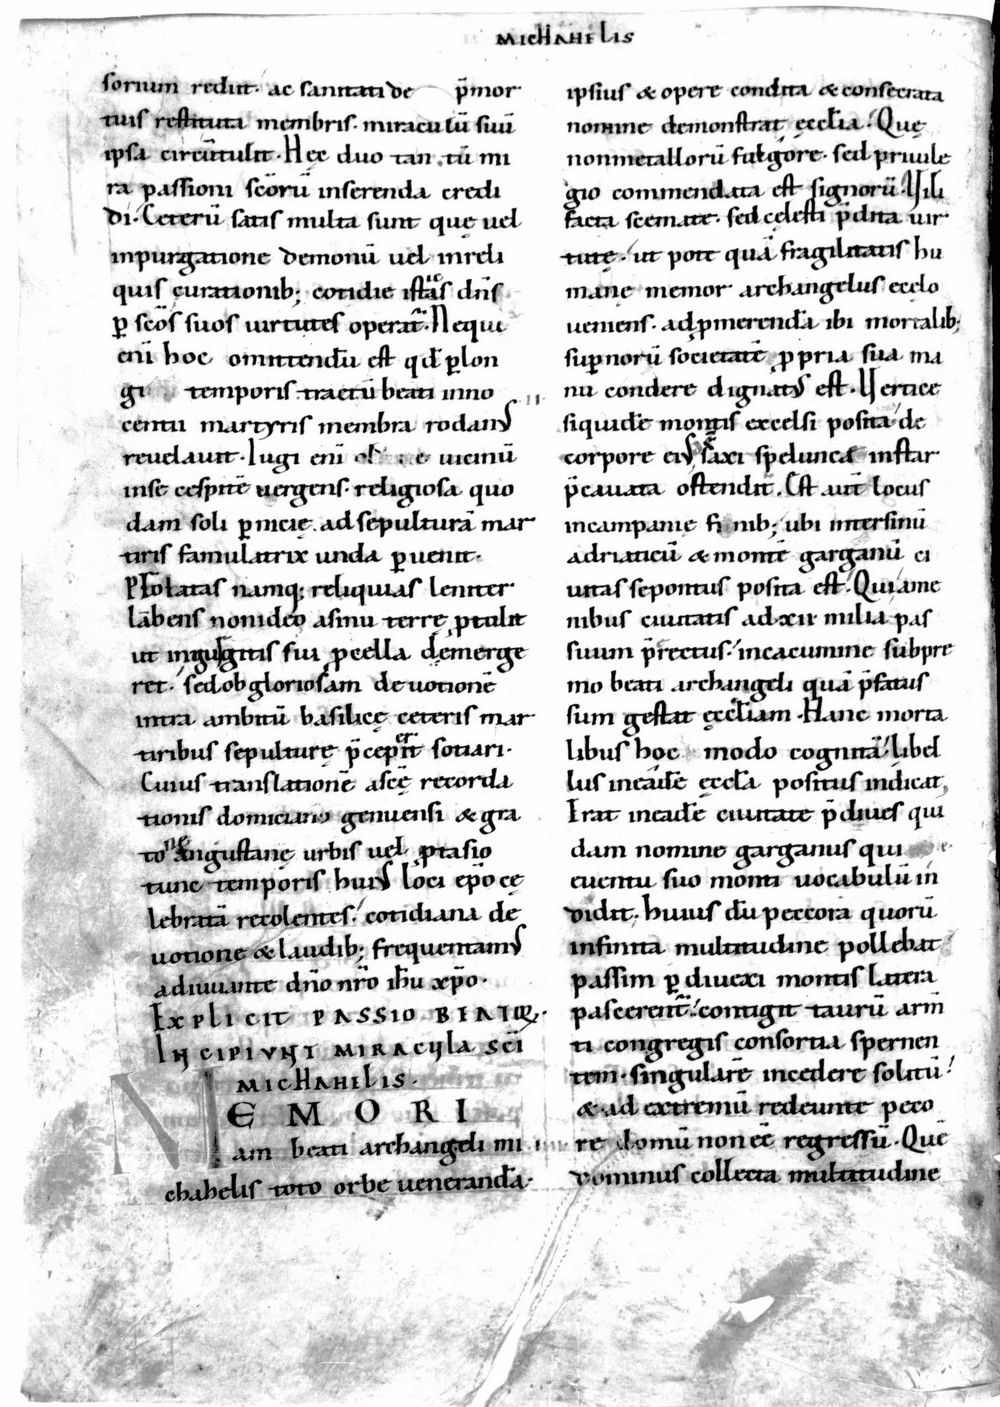 MICHAHELIS
sorium rediit· ac sanitati de p̄mor
tuis restituta membris· miraculū suū
ipsa circūtulit· Hęc duo tantū mi
ra passioni scōrū inserenda credi
di· Ceterū satis multa sunt quę uel
inpurgatione demonū uel inreli
quis curationib; cotidie istas dn̄s
ꝑ scōs suos uirtutes operat̄· Neque
enī hoc omittendū est qd̄ ꝑlon
gi temporis tractū beati inno
centii martyris membra rodanus
reuelauit· Iugi enī uicinū
inse cespitē uergens· religiosa quo
dam soli ꝑnicię· ad sepulturā mar
tiris famulatrix unda ꝑuenit·
Ptolatas namq; reliquias leniter
lābens non ideo asinu terrę ꝓtulit
ut ingurgitis sui ꝓcella demerge
ret· sed ob gloriosam deuotionē
intra ambitū basilicę ceteris mar
tiribus sepulturę p̄cepit sotiari·
Cuius translationē ascę recorda
tionis domiciano genuensi & gra
to augustanę urbis uel ꝓtasio
tunc temporis huius loci ep̄o ce
lebratā recolentes· cotidiana de
uotione & laudib; frequentamus
adiuuante dn̄o nr̄o ih̄u xp̄o·
EXPLICIT PASSIO BEATORꝜ·
INCIPIUNT MIRACULA SCĪ
MICHAHELIS·
MEMORI
am beati archangeli mi
chahelis toto orbe uenerandā·
ipsius & opere condita & consecrata
nomine demonstrat ęccl̄ia· Quę
non metallorū fulgore· sed priuile
gio commendata est signorū· Uili
facta scemate· sed cęlesti p̄dita uir
tutę· ut pote quā fragilitatis hu
manę memor archangelus ęcęlo
ueniens· ad ꝓmerendā ibi mortalib;
supnorū societatē ꝓpria sua ma
nu condere dignatus est· Uertice
siquidē montis excelsi posita de
corpore eius saxi speluncę instar
p̄cauata ostendit̄· Est aūt locus
incampanię finib; ubi intersinū
adriaticū & montē garganū ci
uitas sepontus posita est· Qui ame
nibus ciuitatis ad xii milia pas
suum p̄rectus· incacumine supre
mo beati archangeli quā p̄fatus
sum gestat ęccl̄iam· Hanc morta
libus hoc modo cognitā· libel
lus ineadē ęccl̄a positus indicat,
Erat ineadē ciuitate p̄diues qui
dam nomine garganus qui
euentu suo monti uocabulū in
didit· huius dū peccora quorū
infinita multitudine pollebat
passim ꝑ diuexi montis latera
pascerent̄· contigit taurū arm̄
ti congregis consortia spernen
tem· singularē incedere solitū
& ad extremū redeunte peco
re domū non eē regressū· Quē
dominus collecta multitudine